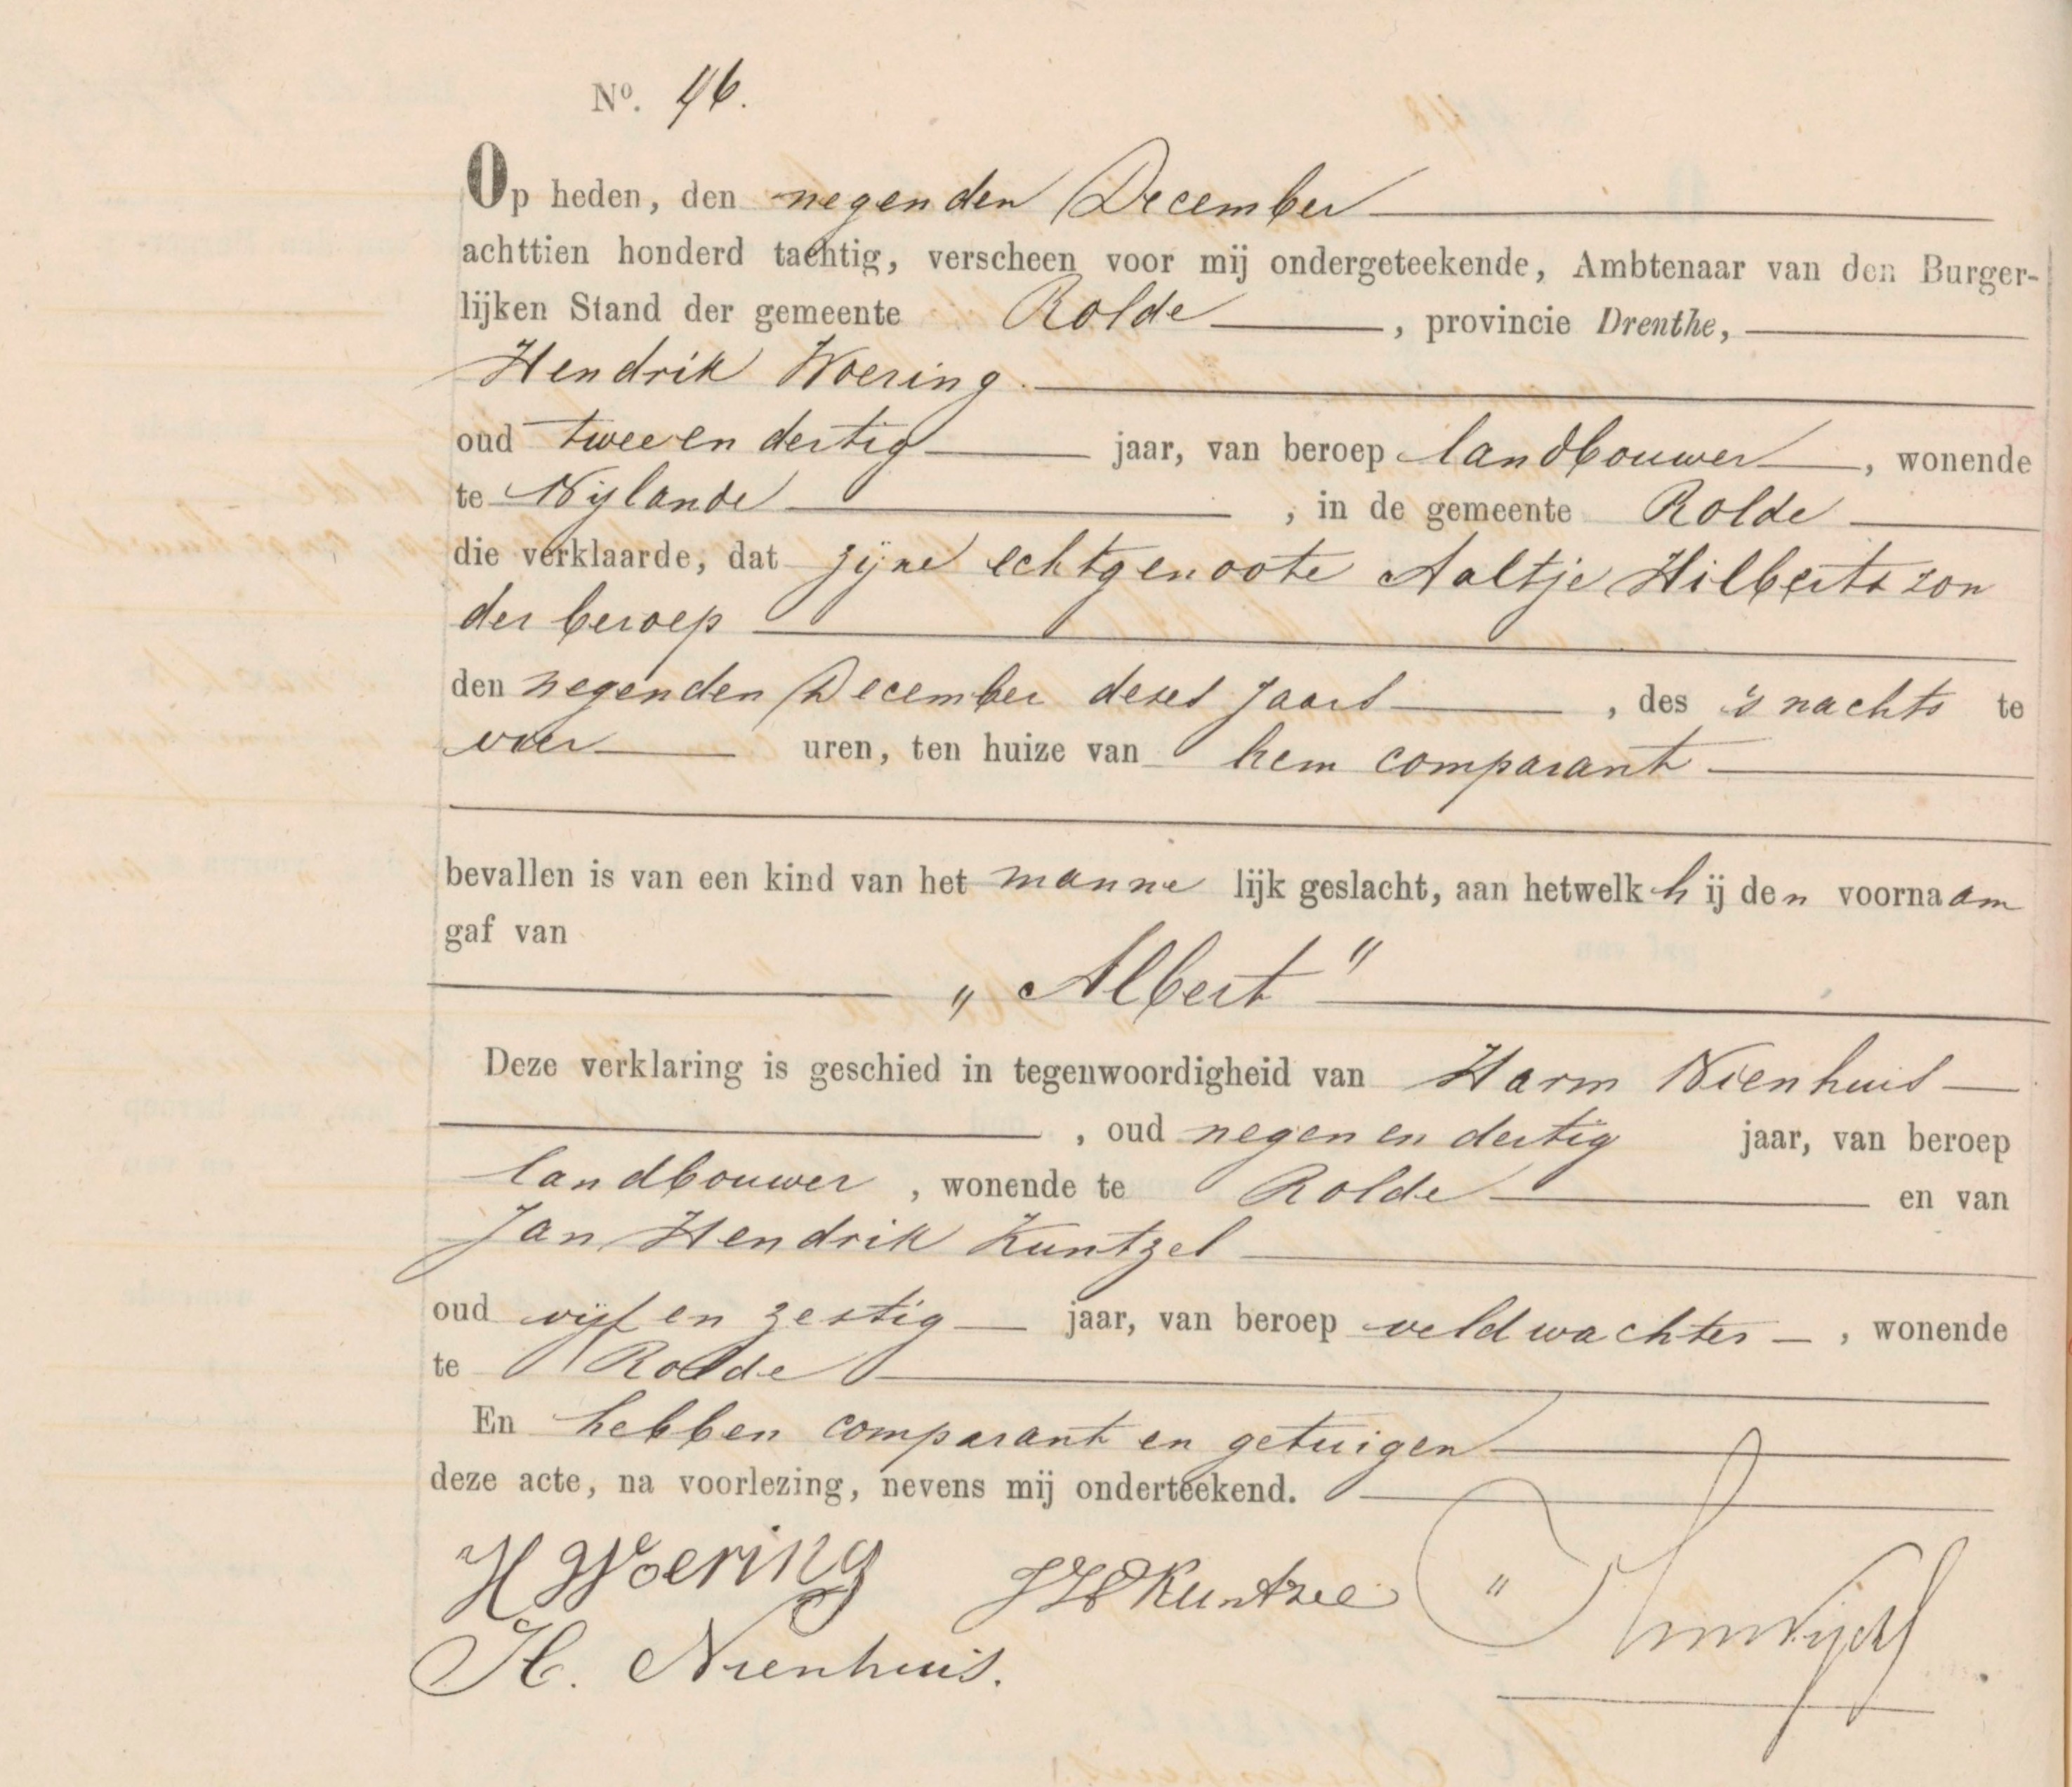 No. 46.
Op heden, den negenden December
achttien honderd tachtig, verscheen voor mij ondergeteekende, Ambtenaar van den Burger-
lijken Stand der gemeente Rolde, provincie Drenthe,
Hendrik Woering.
oud twee en dertig jaar, van beroep landbouwer, wonende
te Nijlande, in de gemeente Rolde
die verklaarde, dat zijne echtgenoote Aaltje Hilberts zon
der beroep
den negenden December dezes jaars, des 's nachts te
vier uren, ten huize van hem comparant
bevallen is van een kind van het manne lijk geslacht, aan hetwelk h ij den voornaam
gaf van
„ Albert "
Deze verklaring is geschied in tegenwoordigheid van Harm Nienhuis
, oud negen en dertig jaar, van beroep
landbouwer, wonende te Rolde en van
Jan Hendrik Kuntzel
oud vijf en zestig jaar, van beroep veldwachter, wonende
te Rolde
En hebben comparant en getuigen
deze acte, na voorlezing, nevens mij onderteekend.
H Woering JH Kuntzel
H. Nienhuis.